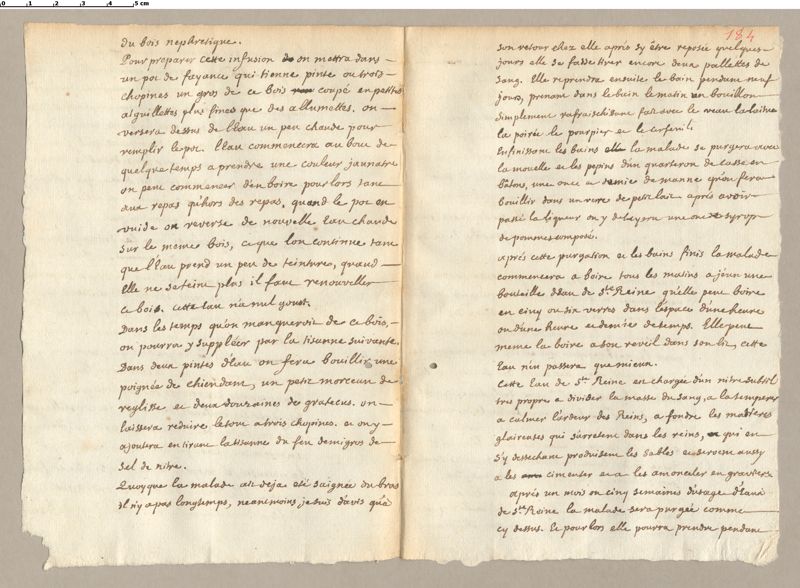 0 1 2 3 4 5 cm
du bois nephretique.
Pour preparer cette infusion on mettra dans
un pot de fayance qui tienne pinte ou trois
chopines un gros de ce bois coupé en petites
aiguillettes plus fines que des allumettes. on
versera dessus de l'eau un peu chaude pour
remplir le pot. l'eau commencera au bout de
quelque temps a prendre une couleur jaunatre
on peut commencer d'en boire pour lors tant
aux repas qu'hors des repas, quand le pot en
vuide on reverse de nouvelle eau chaude
sur le meme bois, ce que l'on continue tant
que l'eau prend un peu de teinture, quand
elle ne se teint plus il faut renouveller
ce bois. cette eau n'a nul goust.
Dans les temps qu'on manqueroit de ce bois,
on pourra y suppléer par la tisanne suivante.
Dans deux pintes d'eau on fera bouillir une
poignée de chiendant, un petit morceau de
reglisse et deux douzaines de gratecus. on
laissera reduire le tout a trois chopines. et on y
ajoutera en tirant la tisanne du feu demi gros de
sel de nitre.
Quoyque la malade ait deja eté saignée du bras
il n'y a pas longtemps, neanmoins je suis d'avis qu'a
184
son retour chez elle aprés s'y être reposée quelques
jours elle se fasse tirer encore deux pallettes de
sang. Elle reprendra ensuite le bain pendant neuf
jours, prenant dans le bain le matin un bouillon
simplement rafraischissant fait avec le veau la laitue
la poirée le pourpier et le cerfeuil.
Enfinissant les bains la malade se purgera avec
la mouelle et les pepins d'un quarteron de casse en
bâtons, une once et demie de manne qu'on fera
bouillir dans un verre de petit lait. aprés avoir
passé la liqueur on y delayera une once syrop
de pommes composé.
aprés cette purgation et les bains finis la malade
commencera a boire tous les matins a jeun une
bouteille d'eau de Ste Reine qu'elle peut boire
en cinq ou six verres dans l'espace d'une heure
ou d'une heure et demie de temps. Elle peut
meme la boire a son reveil dans son lit, cette
eau n'en passera que mieux.
Cette Eau de Ste Reine en chargée d'un nitre subtil
tres propre a diviser la masse du sang, a la temperer
a calmer l'ardeur des Reins, a fondre les matieres
glaireuses qui s'arretent dans les reins, qui en
s'y dessechant produisent les sables et servent aussy
a les cimenter et a les amonceler en graviers
aprés un mois ou cinq semaines d'usage d'eau
de Ste Reine la malade sera purgée comme
cy dessus. Et pour lors elle pourra prendre pendant